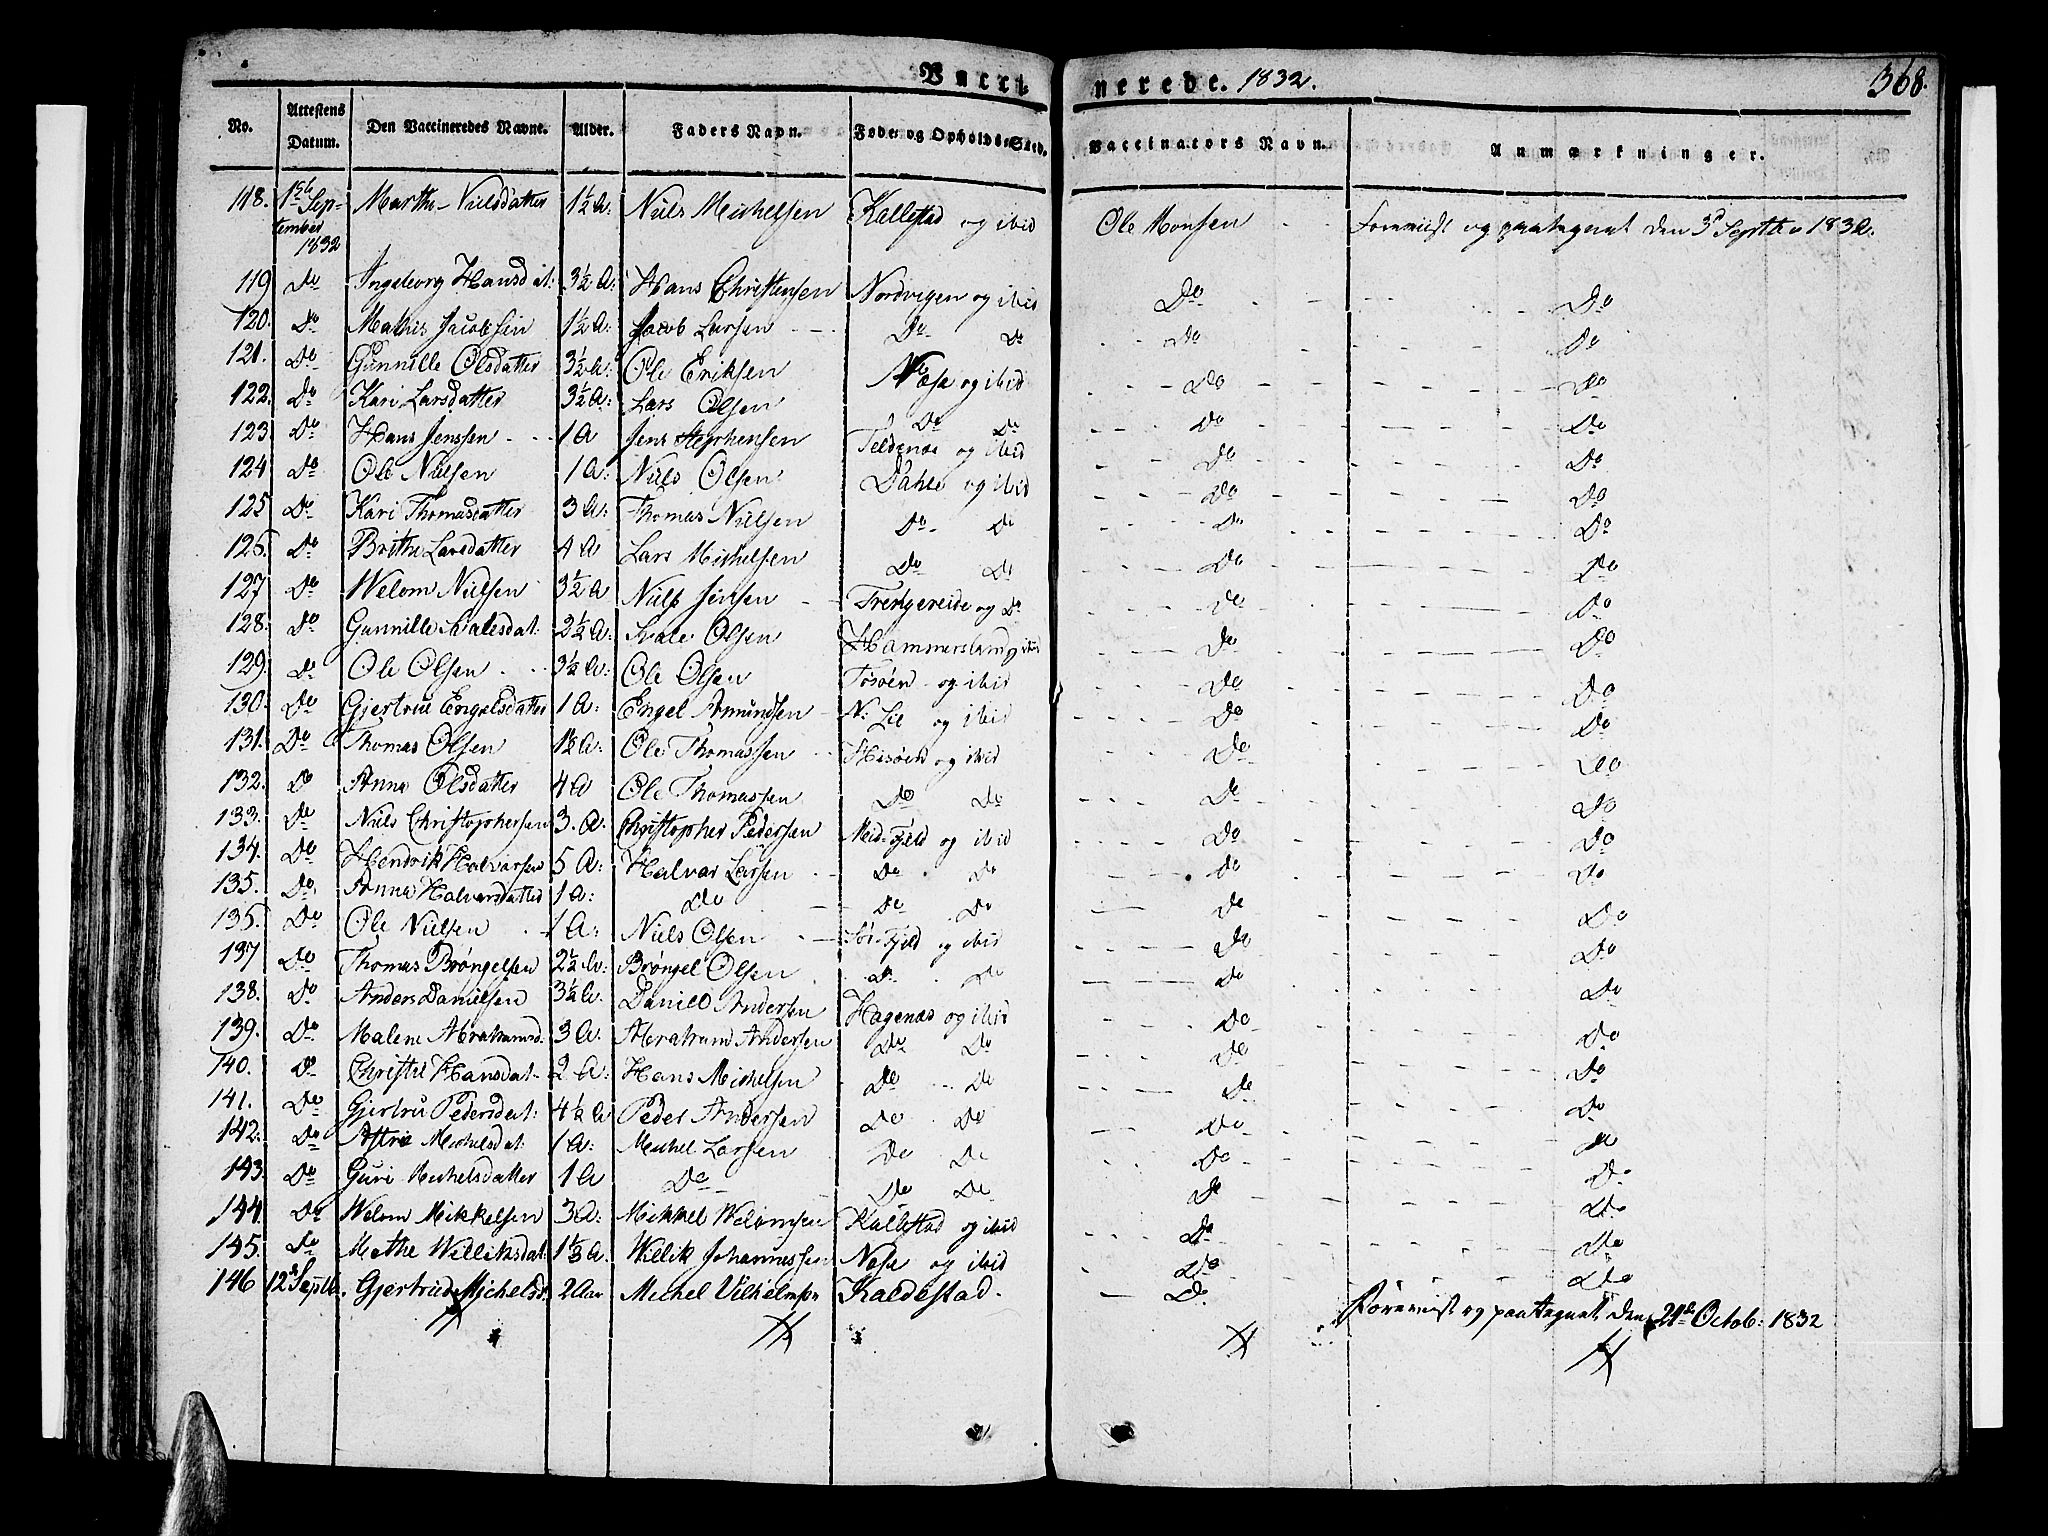 Vacci nerede. 1832. 368.
No. Attestens Datum. Den Vaccineredes Navne. Alder. Faders Navn. Føde- og Opholds-Sted. Vaccinators Navn. Anmærkninger.
118. 1ste September 1832 Marthe Nielsdatter 1½ A: Niels Michelsen Kallestad og ibid Ole Monsen Foreviist og paategnet den 3d Septbr 1832.
119 Do Ingeborg Hansdat: 3½ A: Hans Christensen Nordvigen og ibid Do Do
120. Do Mathis Jacobsen 1½ A Jacob Larsen Do Do Do Do
121. Do Gunnille Olsdatter 3½ A: Ole Eriksen Næse og ibid Do Do
122. Do Kari Larsdatter 3½ A: Lars Olsen Do Do Do Do
123. Do Hans Jenssen 1 A Jens Stephensen Teldenæs og ibid Do Do
124 Do Ole Nielsen 1 A: Niels Olsen Dahle og ibid Do Do
125 Do Kari Thomasdatter 3 A: Thomas Nielsen Do Do Do Do
126. Do Brithe Larsdatter 4 A Lars Michelsen Do Do Do Do
127 Do Welom Nielsen 3½ A Niels Jensen Trengereide og Do Do Do
128. Do Gunnille dat: 2½ A: Olsen Hammersland og ibid Do Do
129. Do Ole Olsen 3½ A: Ole Olsen Tosøen og ibid Do Do
130. Do Gjertrue Engelsdatter 1 A: Engel Amundsen N: Lie og ibid Do Do
131. Do Thomas Olsen 1½ A: Ole Thomassen Hisøen og ibid Do Do
132. Do Anna Olsdatter 4 A Ole Thomassen Do Do Do Do
133. Do Niels Christophersen 3. A: Christopher Pedersen Meid-Fjeld og ibid Do Do
134. Do Hendrik Halvorsen 5 A: Halvor Larsen Do Do Do Do
135. Do Anna Halvorsdatter 1 A: Do Do Do Do Do
136. Do Ole Nielsen 1 A: Niels Olsen Sør-Fjeld og ibid Do Do
137 Do Thomas Brøngelsen 2½ A: Brøngel Olsen Do Do Do Do
138. Do Anders Danielsen 3½ A: Daniel Andersen Hagenæs og ibid Do Do
139. Do Malene Abrahamsd. 3 A: Abraham Andersen Do Do Do Do
140. Do Christie Hansdat 2 A: Hans Michelsen Do Do Do Do
141. Do Gjertru Pedersdat: 4½ A Peder Andersen Do Do Do Do
142. Do Astrie Michelsdat: 1 A: Michel Larsen Do Do Do Do
143. Do Guri Michelsdatter 1 A Do Do Do Do Do
144. Do Welom Mikkelsen 3 A: Mikkel Welomsen Kallestad og ibid Do Do
145. Do Mathe Williksdat: 1½ A: Willik Johannessen Nese og ibid Do Do
146 12 Septbr. Gjertrud Michelsd. 2 Aar Michel Vilhelmsen Kaldestad. Do. Foreviist og paategnet den 21de Octob: 1832